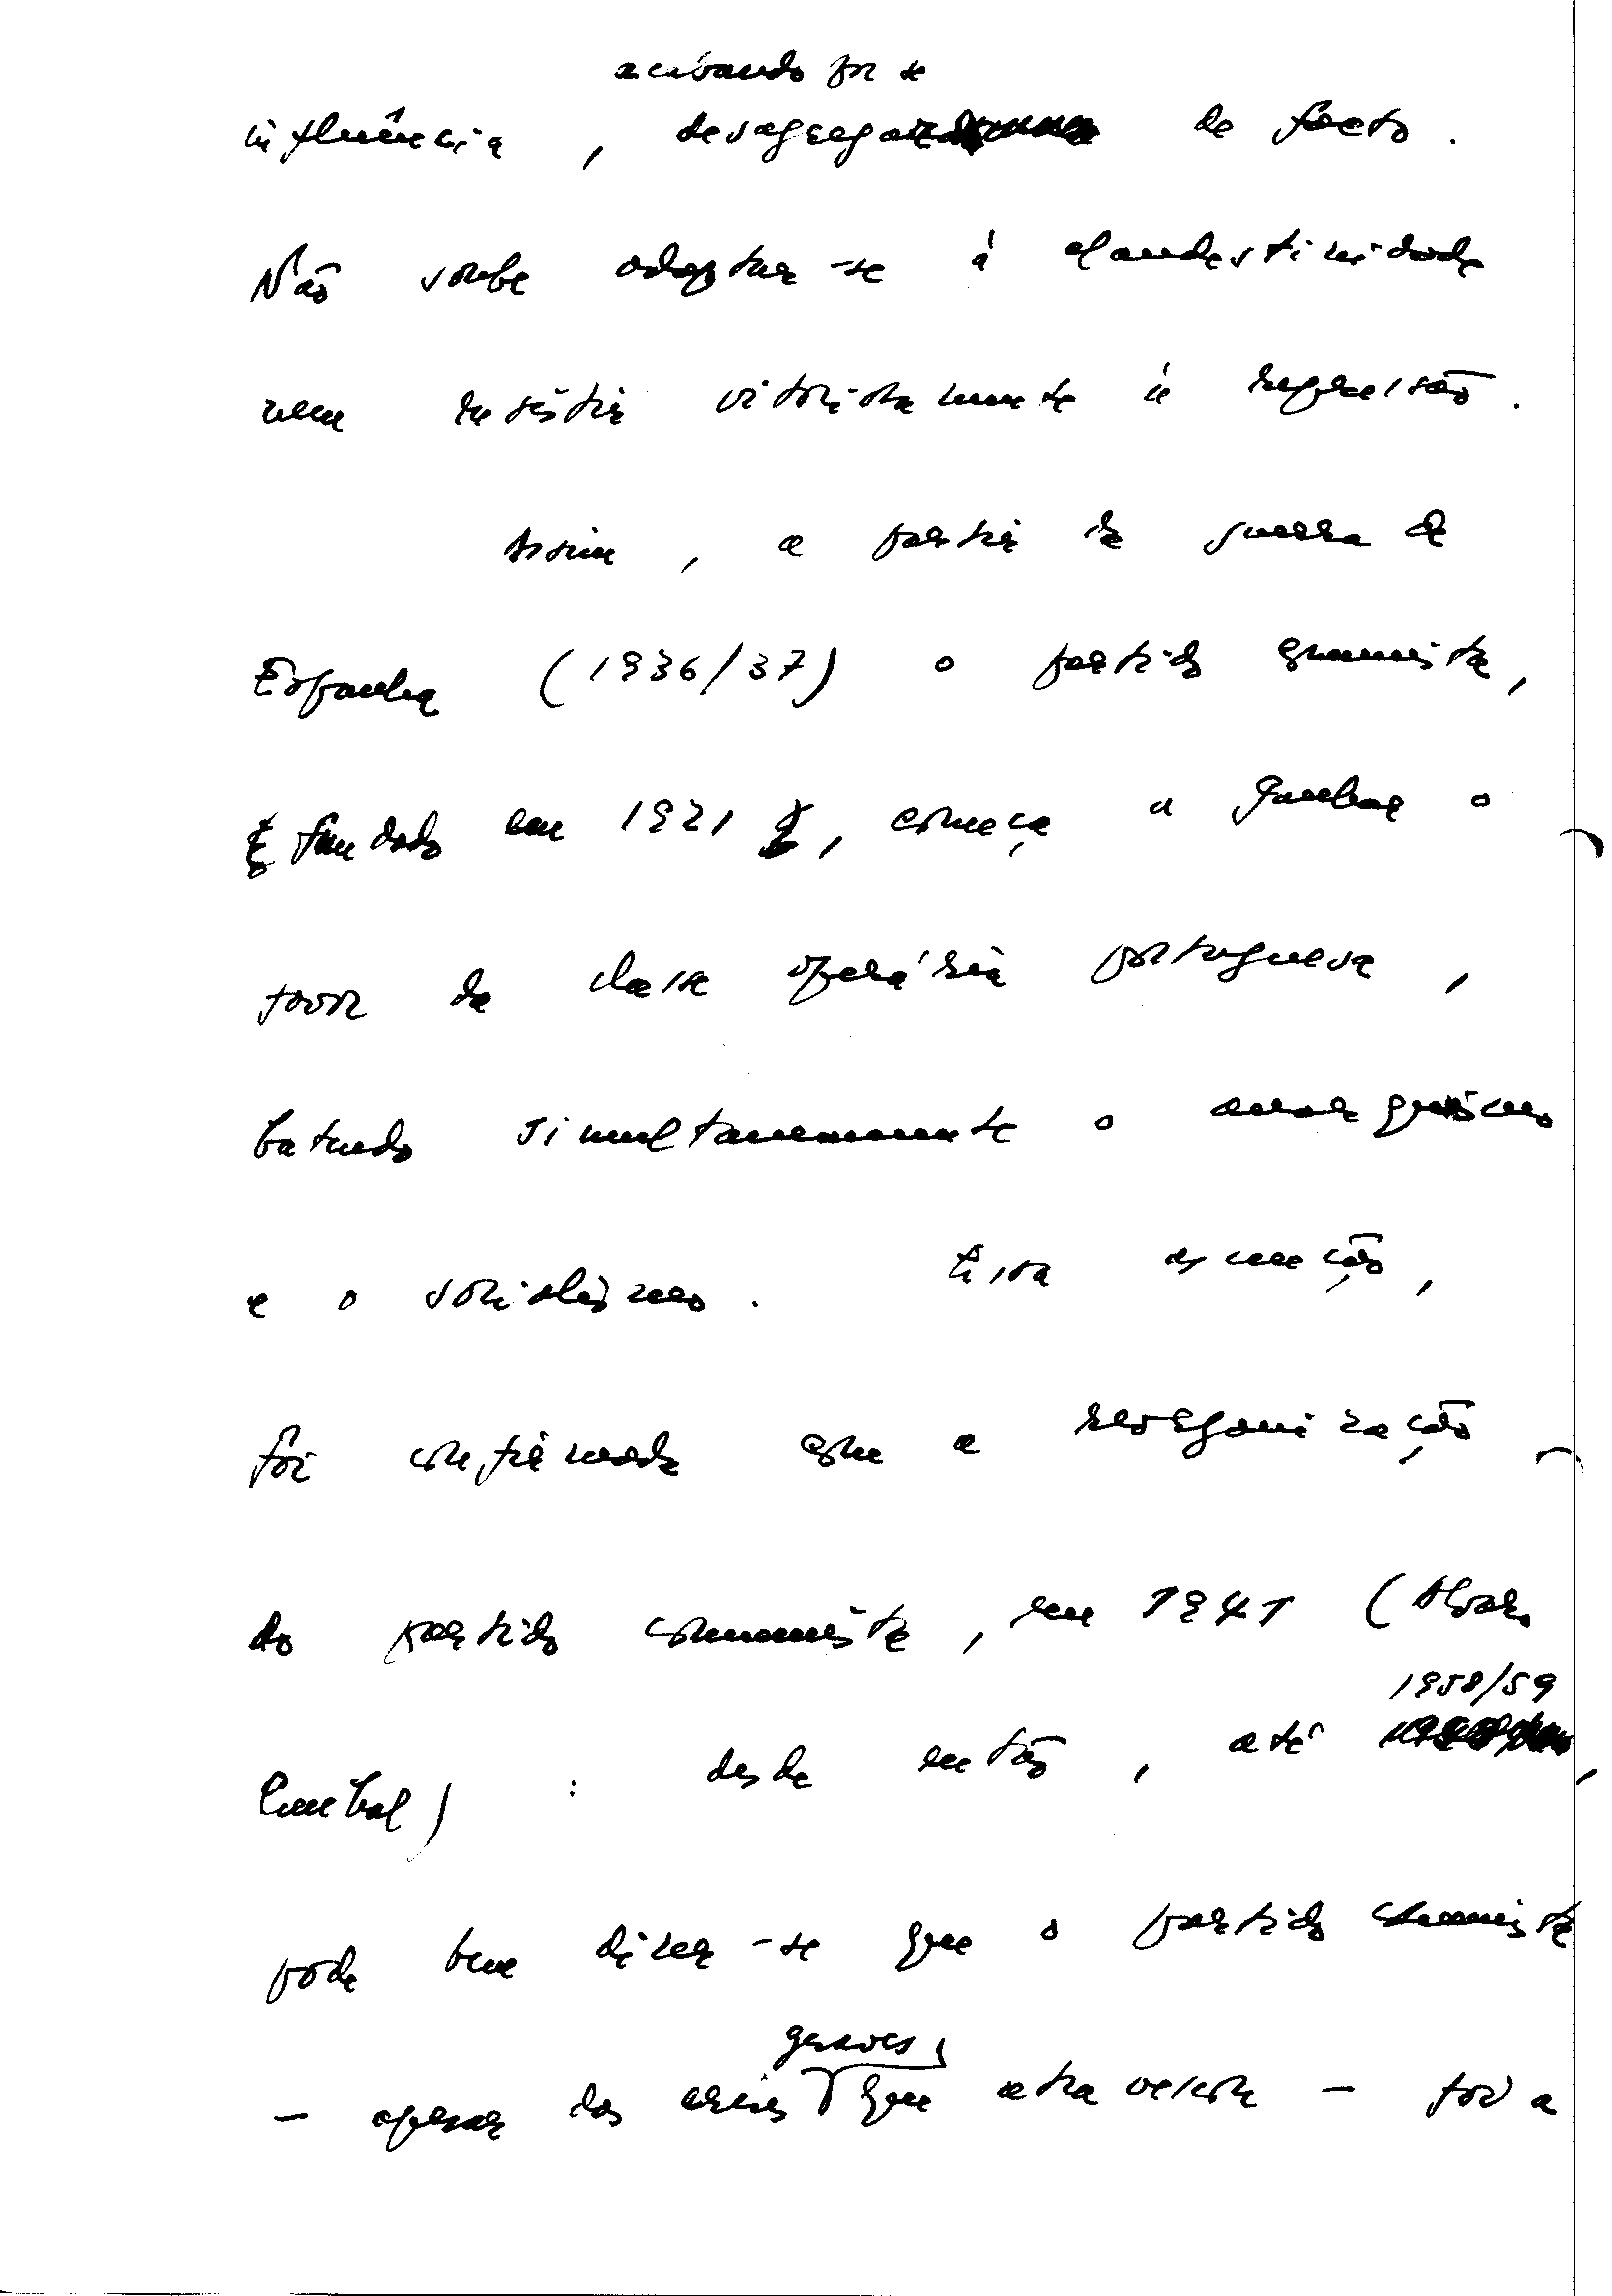 acabando por se
influência, desagregar de facto.
Não soube adaptar-se à clandestinidade
nem resistir vitoriosamente à repressão.
Assim, a partir da guerra de
Espanha (1936/37) o partido comunista,
fundado em 1921, começa a ganhar o
favor da classe operária portuguesa,
batendo simultaneamente o anarquismo
e o socialismo. Essa ascenção,
foi confirmada com a reorganização
do partido comunista, em 1941 (Álvaro
1958/59
Cunhal) : desde então, até ,
pode bem dizer-se que o partido comunista
graves
— apesar das crises que atravessou — foi a